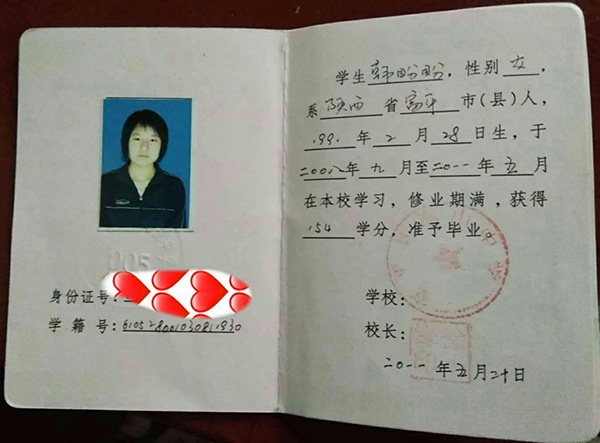 005
身份证号:
学 籍 号:610528001030811930
学生韩盼盼,性别女,
系陕西省富平市(县)人,
1991年2月28日生,于
二00八年九月至二0一一年五月
在本校学习,修业期满,获得
154学分,准予毕业。
学校:
校长:
二0一一年五月二十日